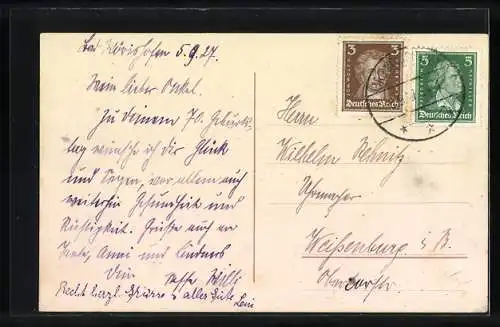 Bad Wörishofen 5.9.27.
Mein lieber Onkel.
Zu deinem 70. Geburts-
tag wünsche ich dir Glück
und Segen, vor allem auch
weiterhin Gesundheit und
Rüstigkeit. Grüße auch an
Tante, Anni und Kinders
Dein Neffe Willi
Recht herzl. Grüsse & alles Gute Leni
3 3
Deutsches Reich
5 5
Deutsches Reich
Herrn
Wilhelm
Uhrmacher
Weißenburg i. B.